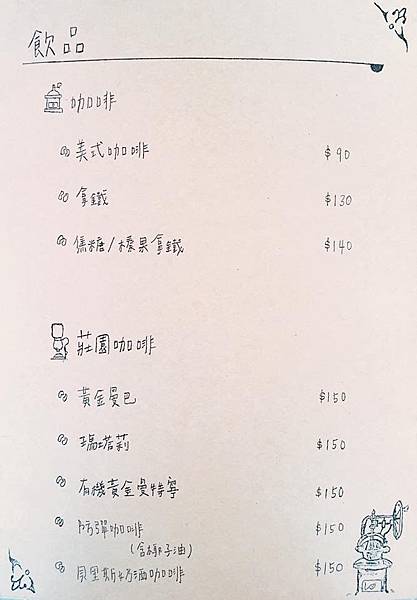 飲品
咖啡
美式咖啡 $90
拿鐵 $130
焦糖/榛果拿鐵 $140
莊園咖啡
黃金曼巴 $150
瑰塔莉 $150
有機黃金曼特寧 $150
防彈咖啡 $150
(含椰子油)
貝里斯奶酒咖啡 $150